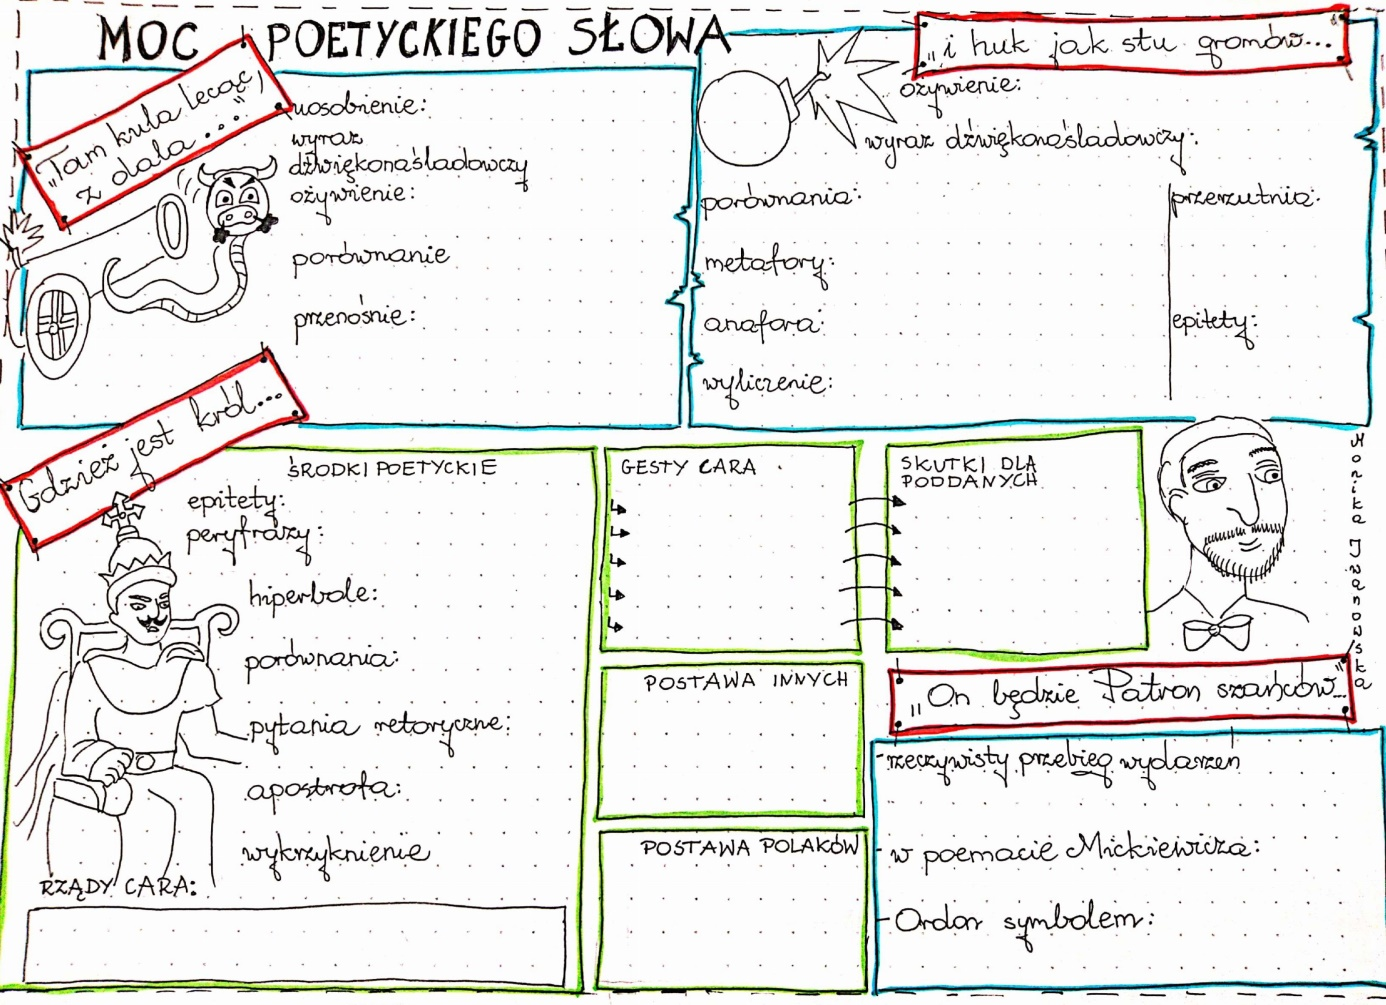 MOC POETYCKIEGO SŁOWA
„Tam kula lecąc,
z dala...”
uosobienie:
wyraz
dźwiękonaśladowczy
ożywienie:
porównanie
przenośnie:
„i huk jak stu gromów...”
ożywienie:
wyraz dźwiękonaśladowczy:
porównania:
przerzutnia:
metafory:
anafora:
epitety:
wyliczenie:
Gdzież jest król...
ŚRODKI POETYCKIE
epitety:
peryfrazy:
hiperbole:
porównania:
pytania retoryczne:
apostrofa:
wykrzyknienie
RZĄDY CARA:
GESTY CARA
SKUTKI DLA
PODDANYCH
POSTAWA INNYCH
POSTAWA POLAKÓW
Monika Iwanowska
„On będzie Patron szańców...”
-rzeczywisty przebieg wydarzeń
-w poemacie Mickiewicza:
-Ordon symbolem: